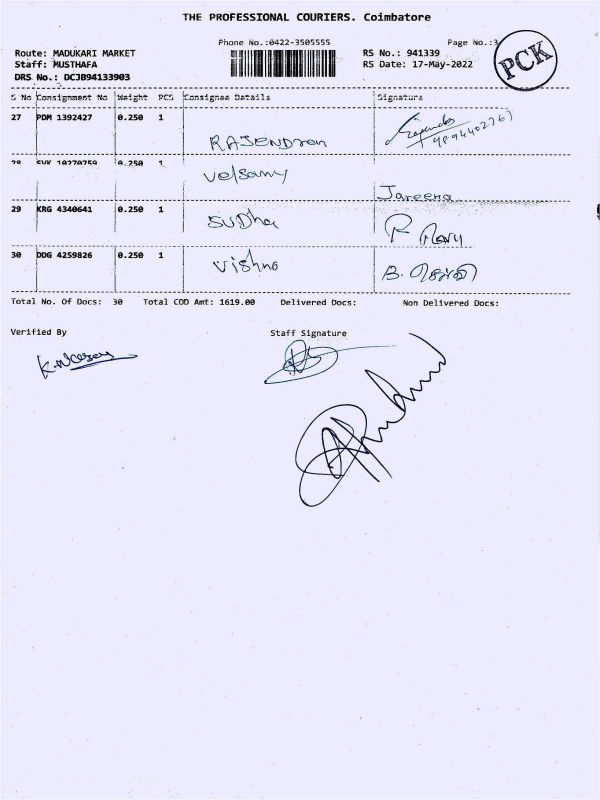 THE PROFESSIONAL COURIERS. Coimbatore
Phone No.:0422-3505555 Page No.:3
PCK
Route: MADUKARI MARKET RS No.: 941339
Staff: MUSTHAFA RS Date: 17-May-2022
DRS No.: DCJB94133903
S No Consignment No Weight PCS Consignee Details Signature
27 PDM 1392427 0.250 1 RAJENDran
28 SVK 10270759 0.250 1 Velsamy Jareena
29 KRG 4340641 0.250 1 SUDha
30 DDG 4259826 0.250 1 Vishno B.
Total No. Of Docs: 30 Total COD Amt: 1619.00 Delivered Docs: Non Delivered Docs:
Verified By Staff Signature